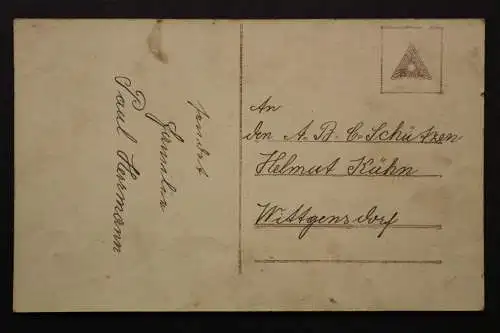 sendet
Familie
Paul Herrmann
An
den A. B. C. Schützen
Helmut Kühn
Wittgensdorf